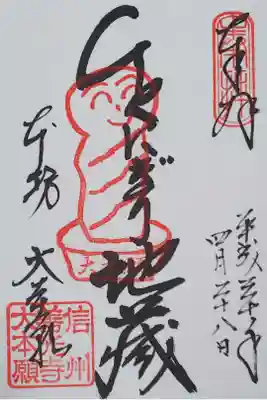 奉拝
平成三十年
四月二十八日
にぎり地蔵
本坊
大本願
信州
善光寺
大本願